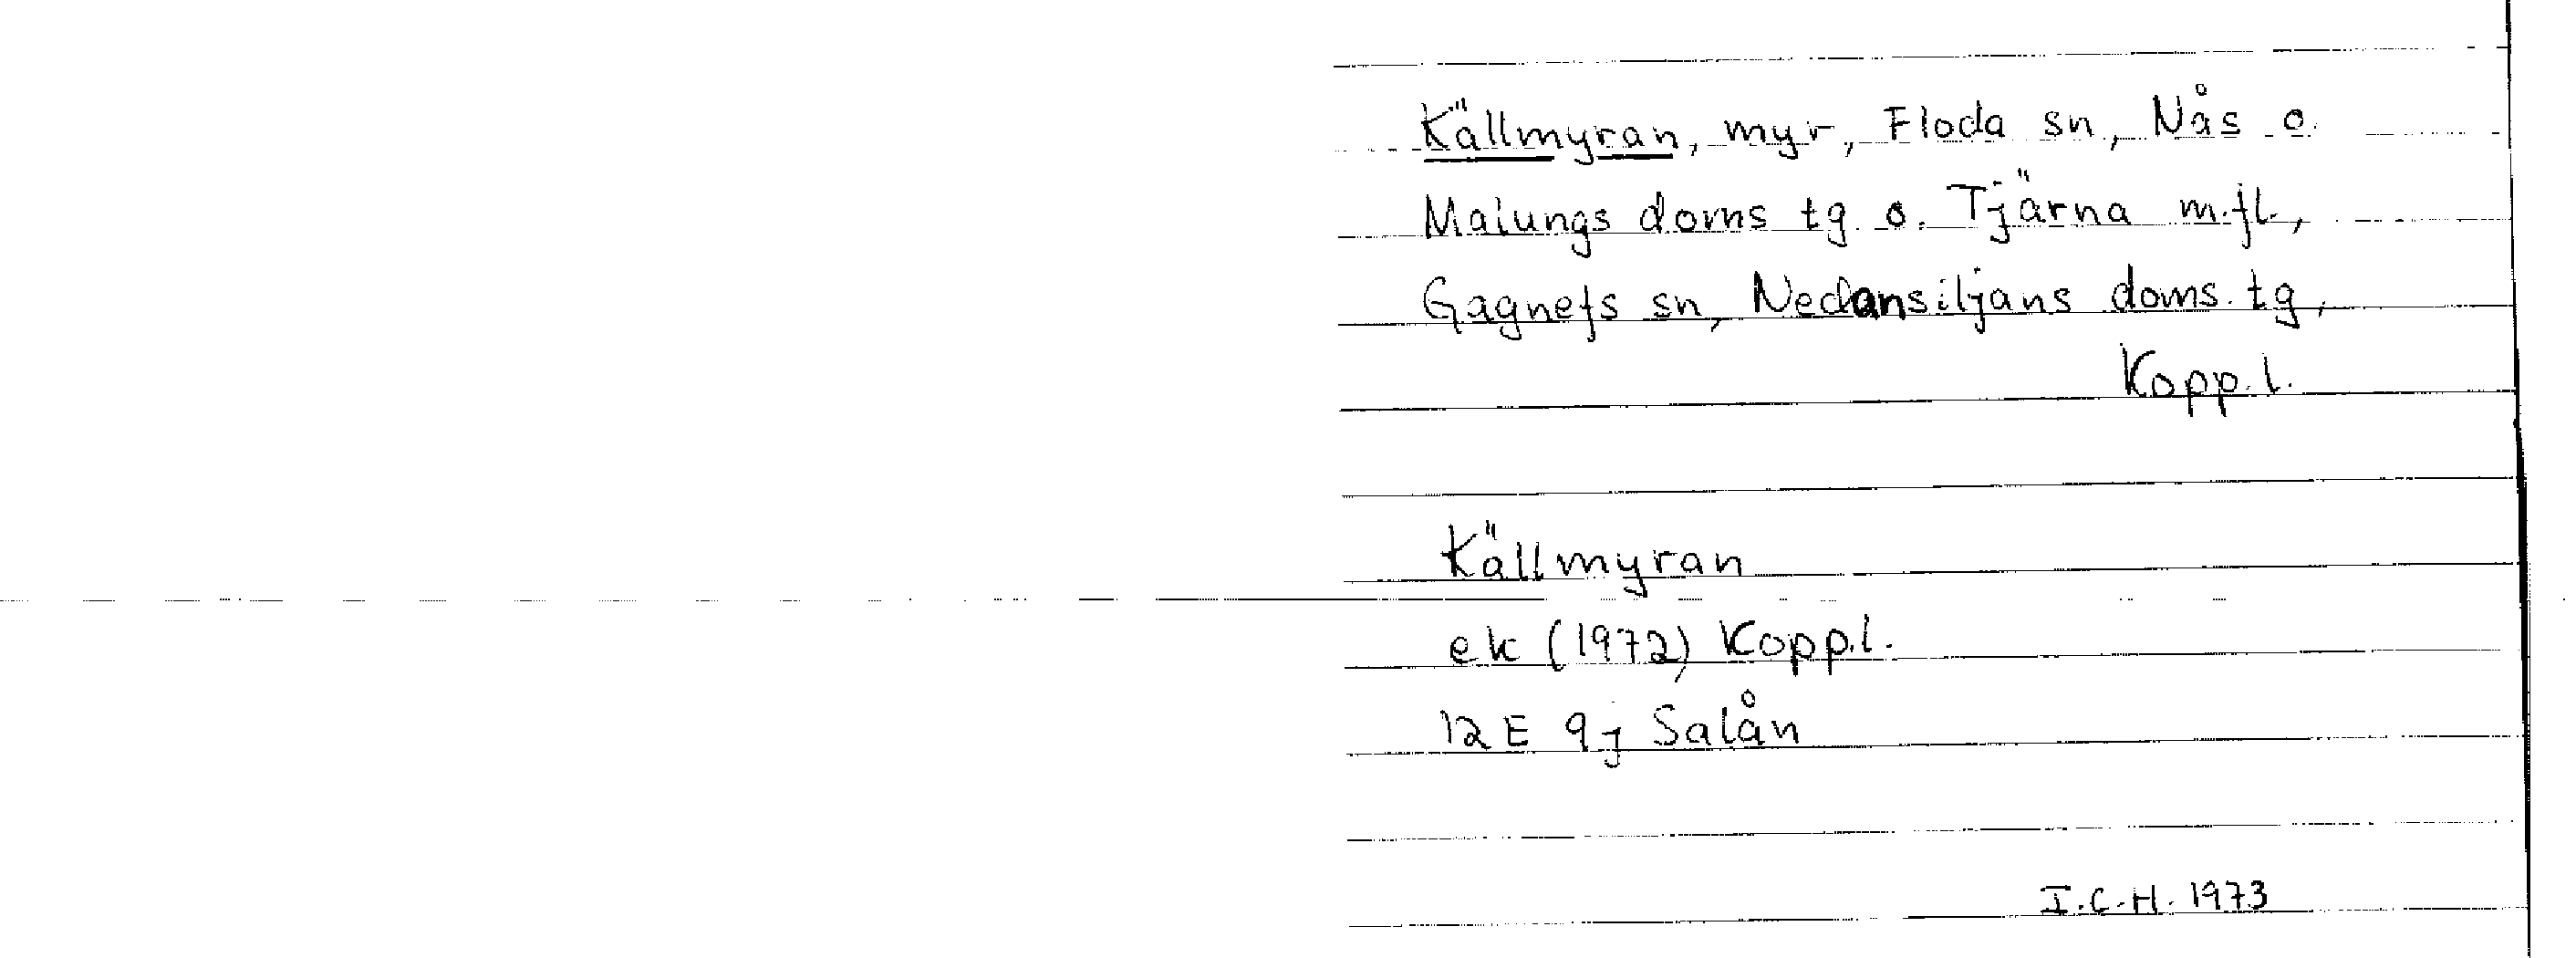 Källmyran, myr, Floda sn, Nås o.
Malungs doms tg o. Tjärna m.fl.,
Gagnefs sn, Nedansiljans doms. tg,
Kopp.l.
Källmyran
ek (1972) Kopp.l.
12 E 9j Salån
I.C.H. 1973